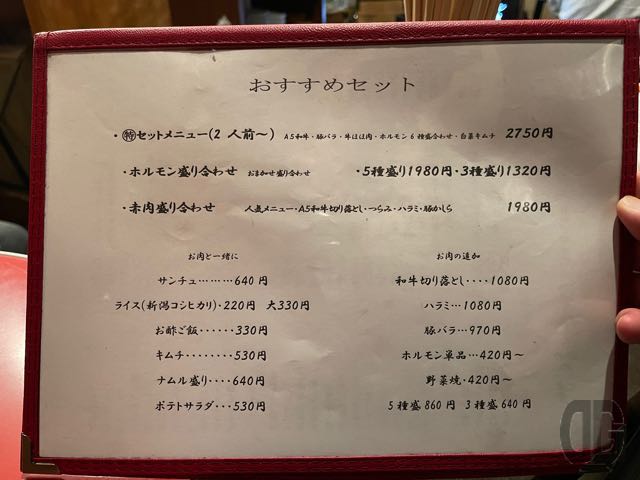 おすすめセット
・㊕セットメニュー(2人前～) A5和牛・豚バラ・牛ほほ肉・ホルモン6種盛合わせ・白菜キムチ 2750円
・ホルモン盛り合わせ おまかせ盛り合わせ ・5種盛り1980円・3種盛り1320円
・赤肉盛り合わせ 人気メニュー・A5和牛切り落とし・つらみ・ハラミ・豚かしら 1980円
お肉と一緒に
サンチュ………640円
ライス(新潟コシヒカリ)・220円 大330円
お酢ご飯‥‥‥330円
キムチ‥‥‥‥530円
ナムル盛り‥‥640円
ポテトサラダ‥・530円
お肉の追加
和牛切り落とし‥‥1080円
ハラミ…1080円
豚バラ…970円
ホルモン単品…420円～
野菜焼・420円～
5種盛860円 3種盛640円